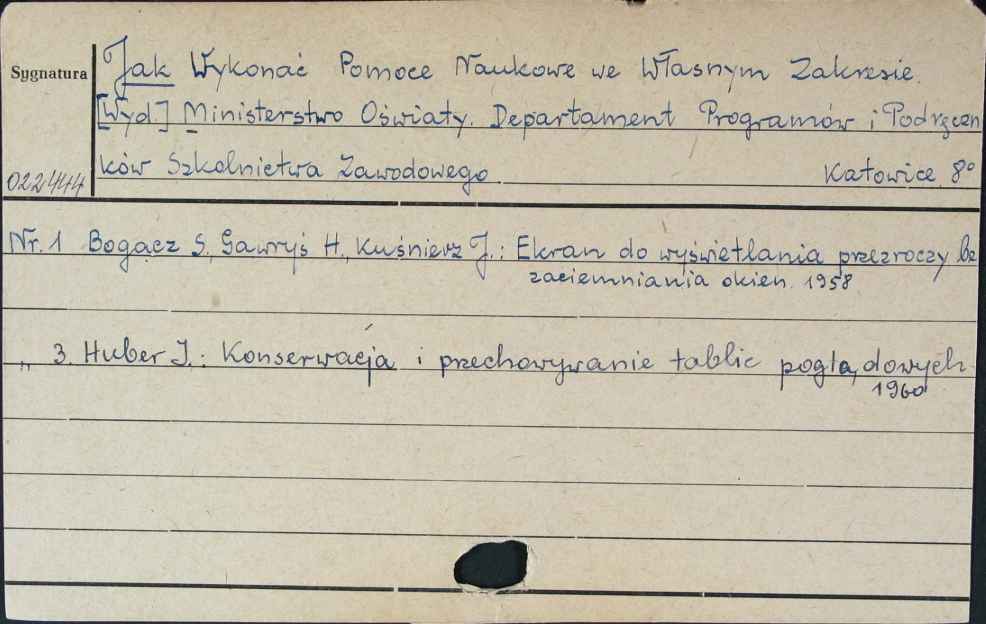 Sygnatura
Jak Wykonać Pomoce Naukowe we Własnym Zakresie.
[Wyd.] Ministerstwo Oświaty. Departament Programów i Podręczn
ków Szkolnictwa Zawodowego Katowice 8°
022444
Nr. 1 Bogacz S., Gawryś H., Kuśnierz J.: Ekran do wyświetlania przezroczy be
zaciemniania okien. 1958
„ 3. Huber J.: Konserwacja i przechowywanie tablic poglądowych.
1960